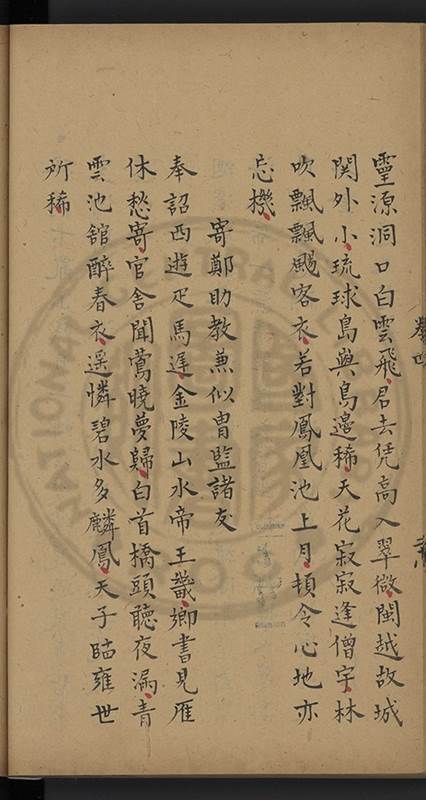 靈源洞口白雲飛君去凭高入翠微閩越故城
関外小琉球島與鳥邊稀天花寂寂逢僧宇林
吹飄飄颺客衣若對鳳凰池上月頓令心地亦
忘機
寄鄭助教兼似胄監諸友
奉詔西遊疋馬遅金陵山水帝王畿鄉書見雁
休愁寄官舍聞鶯曉夢歸白首橋頭聽夜漏青
雲池舘醉春衣遥憐碧水多麟鳳天子臨雍世
所稀